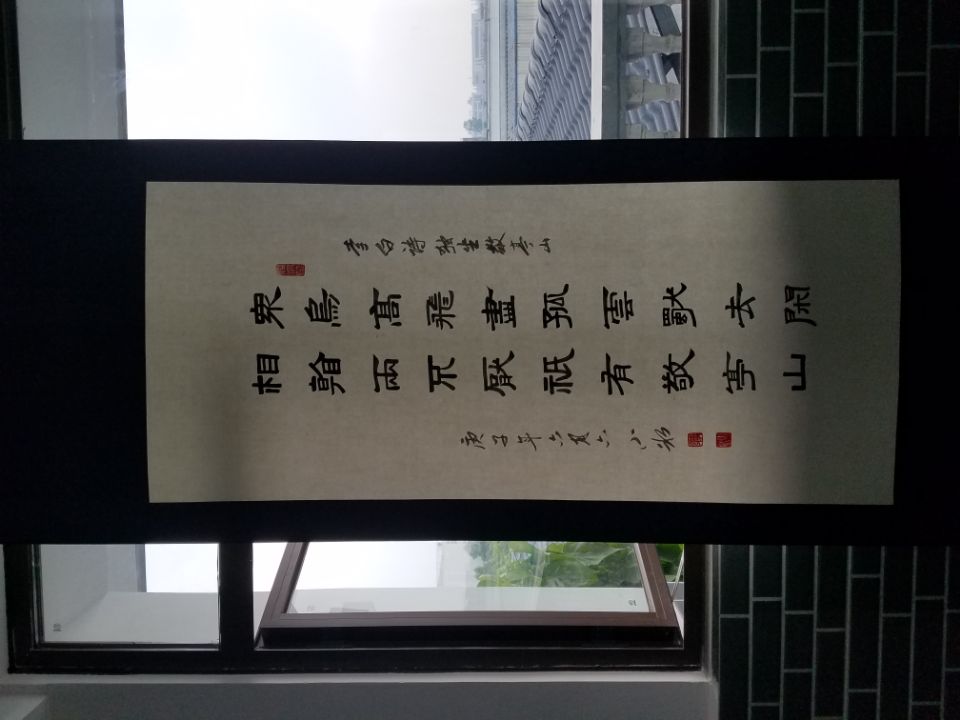 李白詩獨坐敬亭山
衆鳥髙飛盡孤雲獨去閑
相看兩不厭祇有敬亭山
庚子年六月